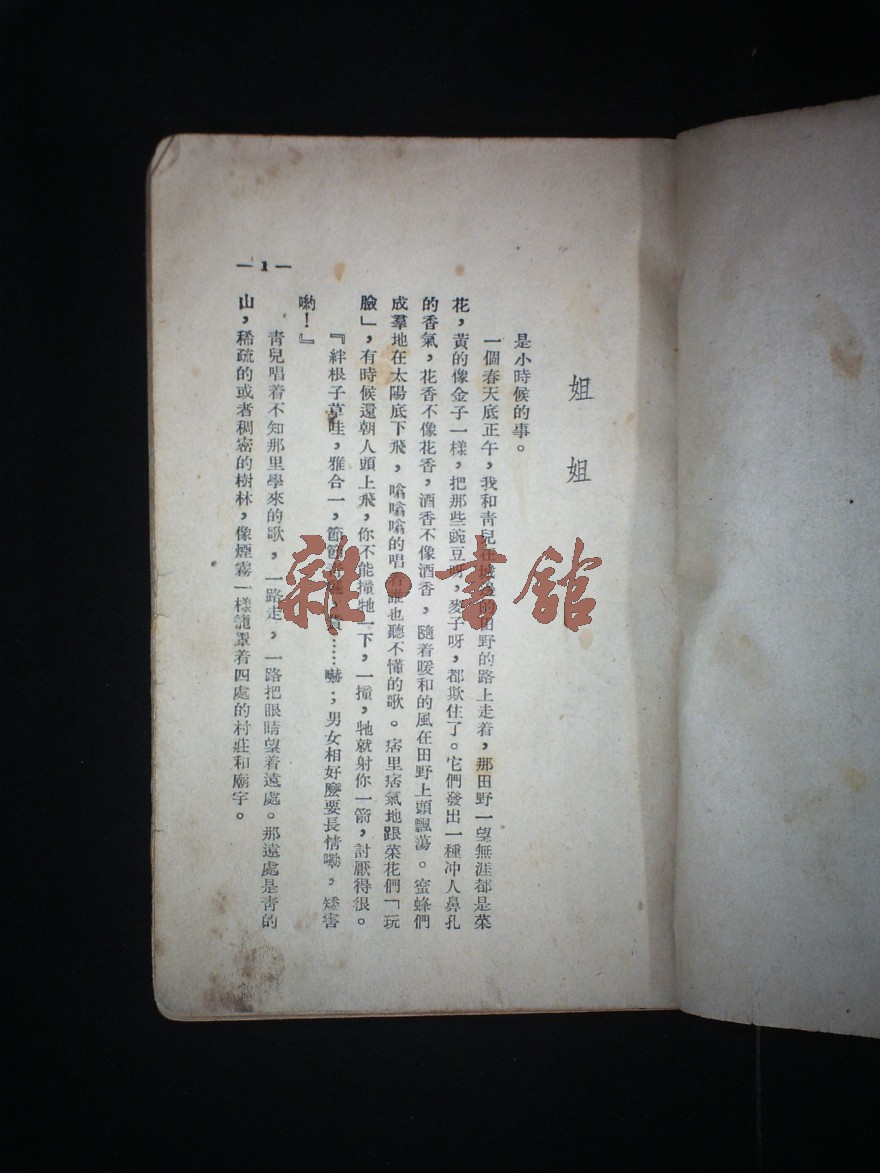 姐姐
是小時候的事。
一個春天底正午，我和靑兒在城邊的田野的路上走着，那田野一望無涯都是菜
花，黃的像金子一樣，把那些豌豆呀，麥子呀，都欺住了。它們發出一種冲人鼻孔
的香氣，花香不像花香，酒香不像酒香，隨着暖和的風在田野上頭飄蕩。蜜蜂們
成羣地在太陽底下飛，嗡嗡嗡的唱着誰也聽不懂的歌。痞里痞氣地跟菜花們「玩
臉」，有時候還朝人頭上飛，你不能撞牠一下，一撞，牠就射你一箭，討厭得很。
『絆根子草哇，雅合一，節節……嚇；男女相好麽要長情嘞，矮害
喲！』
靑兒唱着不知那里學來的歌，一路走，一路把眼睛望着遠處。那遠處是靑的
山，稀疏的或者稠密的樹林，像煙霧一樣籠罩着四處的村莊和廟宇。
—1—
雜·書館